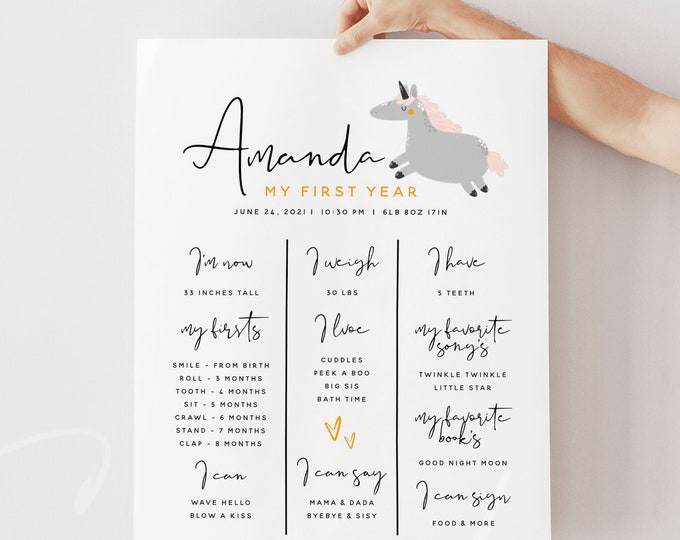 Amanda
MY FIRST YEAR
JUNE 24, 2021 | 10:30 PM | 6LB 8OZ 17IN
I'm now
33 INCHES TALL
my firsts
SMILE - FROM BIRTH
ROLL - 3 MONTHS
TOOTH - 4 MONTHS
SIT - 5 MONTHS
CRAWL - 6 MONTHS
STAND - 7 MONTHS
CLAP - 8 MONTHS
I can
WAVE HELLO
BLOW A KISS
I weigh
30 LBS
I lvoe
CUDDLES
PEEK A BOO
BIG SIS
BATH TIME
I can say
MAMA & DADA
BYEBYE & SISY
I have
5 TEETH
my favorite
song's
TWINKLE TWINKLE
LITTLE STAR
my favorite
book's
GOOD NIGHT MOON
I can sign
FOOD & MORE